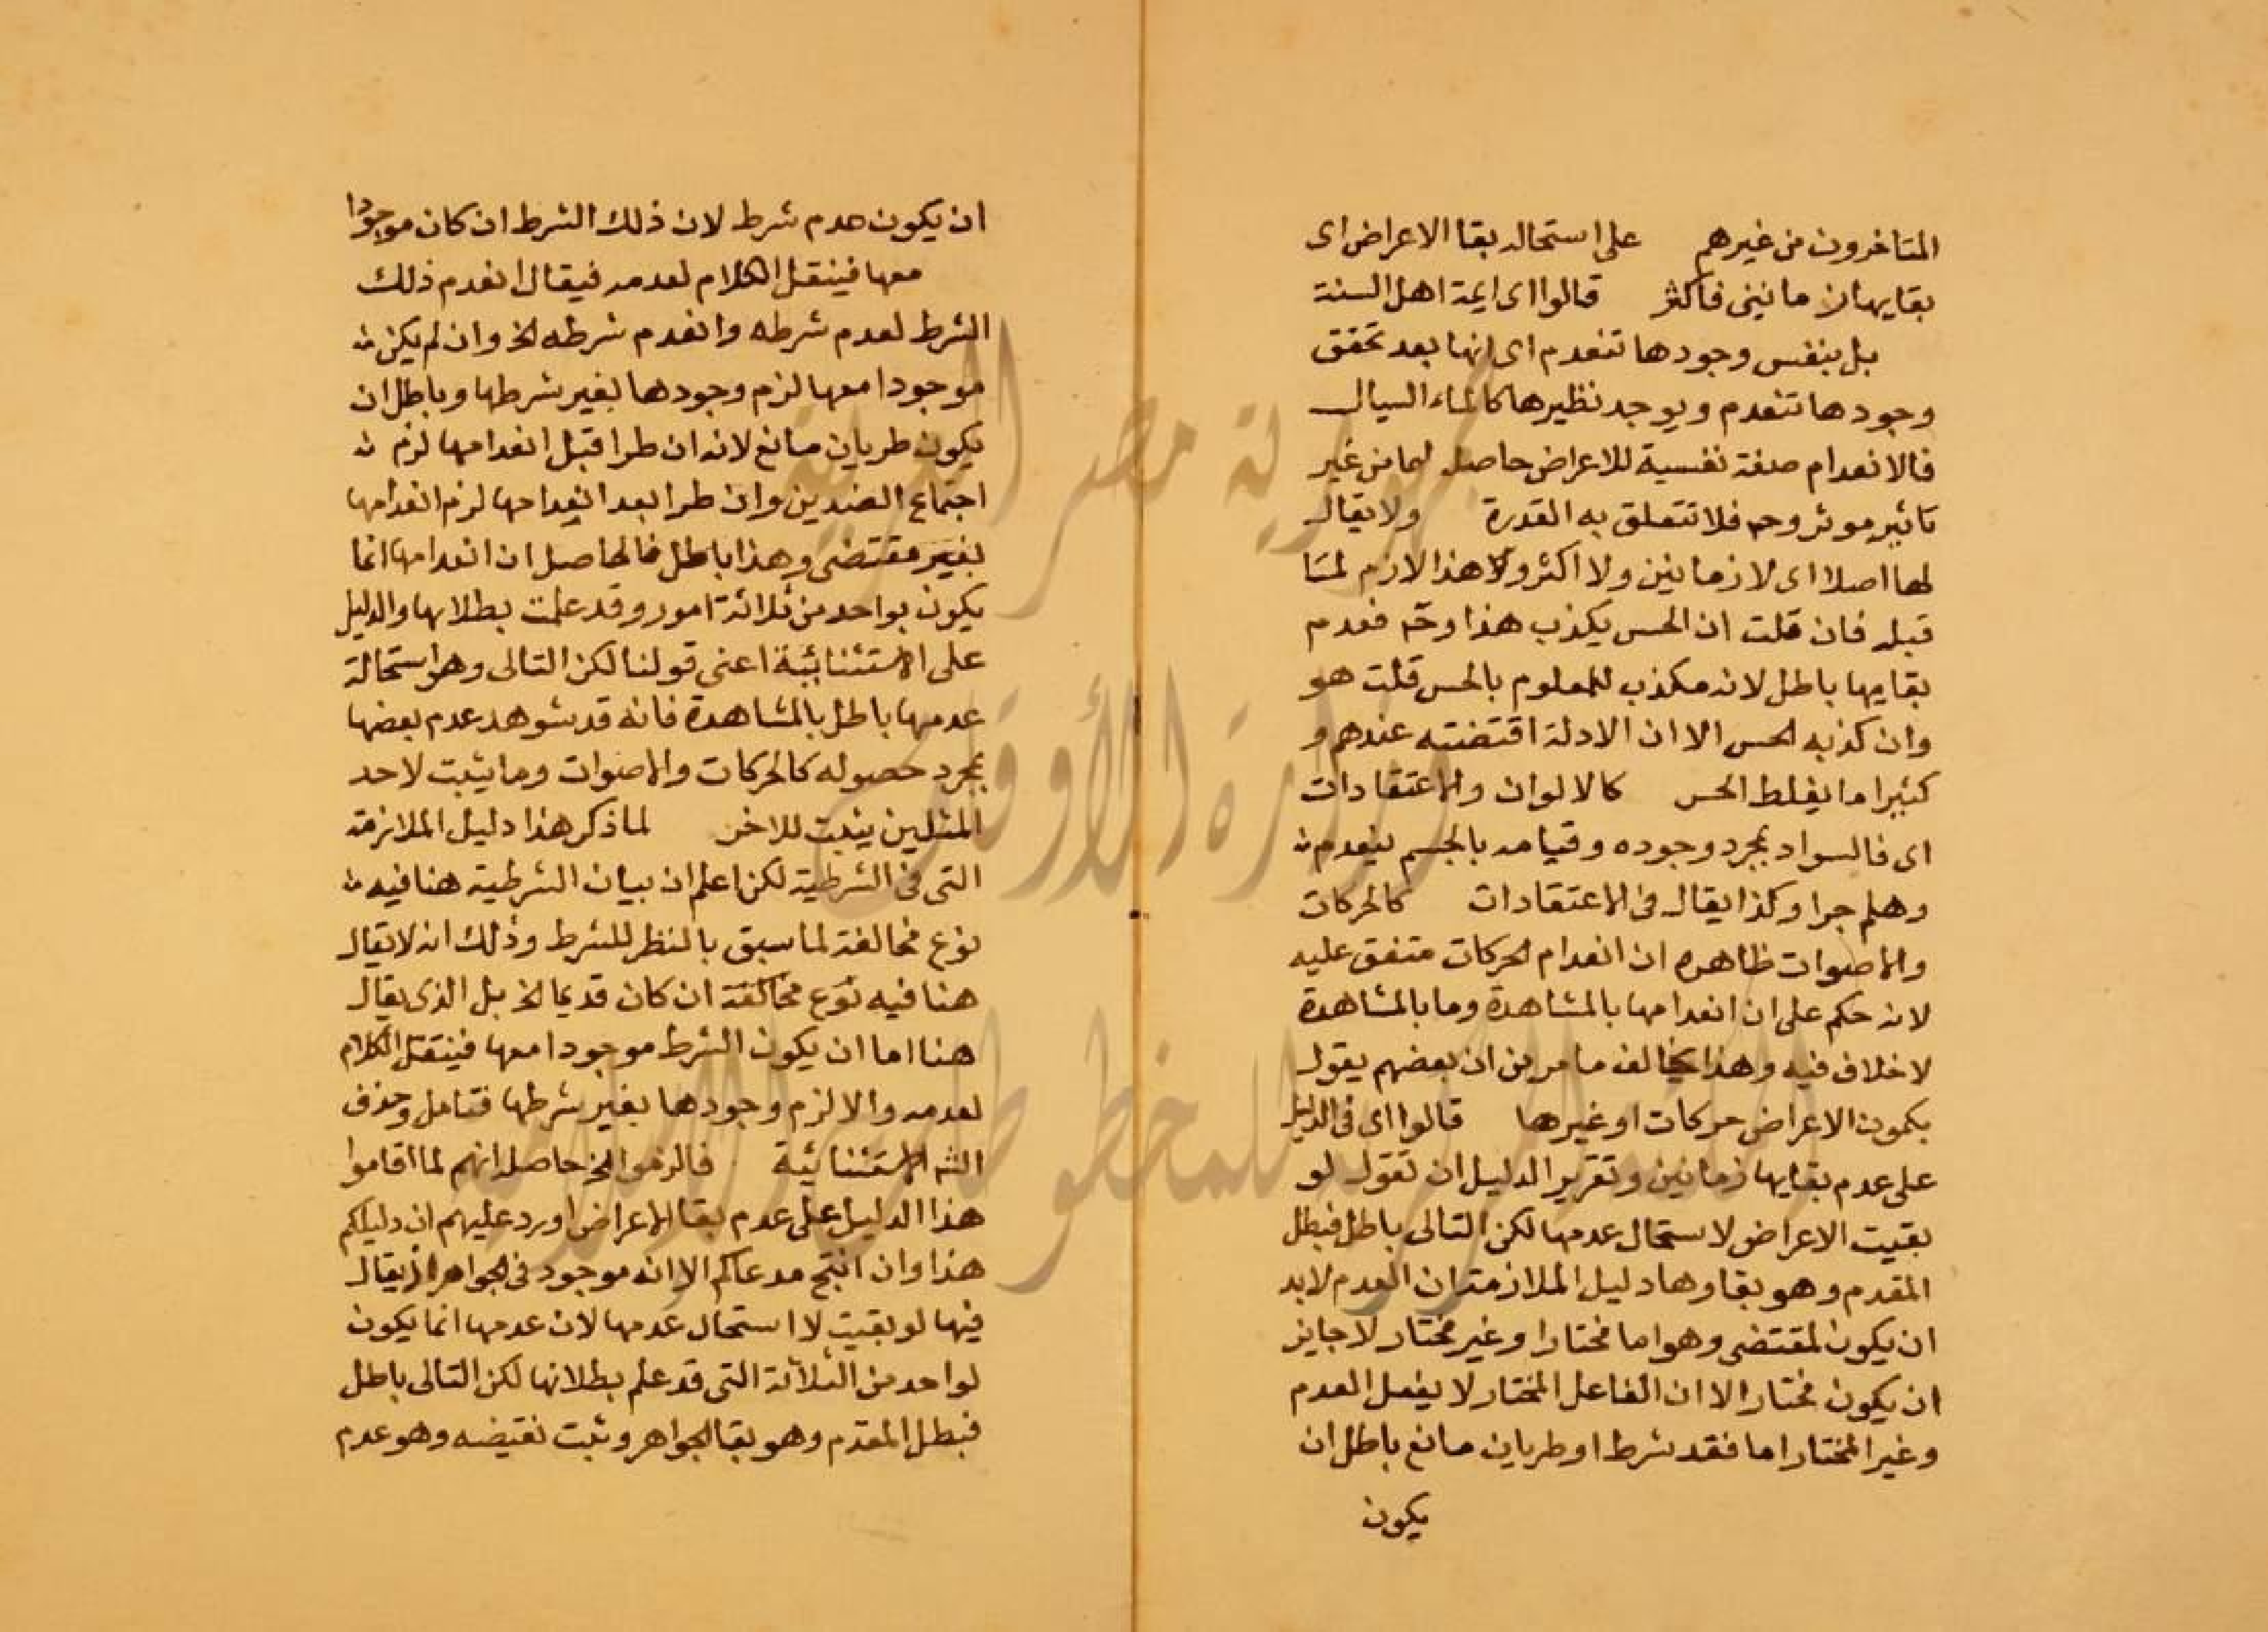 المتاخرون من غيرهم على استحاله بقا الاعراض اى
بقايها زمانين فاكثر قالوا اى ايمة اهل السنة
بل بنفس وجودها تنعدم اى انها بعد تحقق
وجودها تنعدم ويوجد نظيرها كالماء السيال
فالانعدام صفة نفسية للاعراض حاصل لها من غير
تاثير موثر وح فلا تتعلق به القدرة ولا بقا
لها اصلا اى لا زمانين ولا اكثر و هذا لازم لما
قبله فان قلت ان الحس يكذب هذا وح فعدم
بقايها باطل لانه مكذب للمعلوم بالحس قلت هو
وان كذبه الحس الا ان الادلة اقتضته عندهم و
كثيرا ما يغلط الحس كالالوان والاعتقادات
اى فالسواد بمجرد وجوده وقيامه بالجسم ينعدم
وهلم جرا وكذا يقال فى الاعتقادات كالحركات
والاصوات ظاهره ان انعدام الحركات متفق عليه
لانه حكم على ان انعدامها بالمشاهدة وما بالمشاهدة
لا خلاف فيه وهذا يخالف ما مر من ان بعضهم يقول
بكمون الاعراض حركات او غيرها قالوا اى فى الدليل
على عدم بقايها زمانين وتقرير الدليل ان تقول لو
بقيت الاعراض لاستحال عدمها لكن التالى باطل فبطل
المقدم وهو بقاوها دليل الملازمة ان العدم لابد
ان يكون لمقتضى وهو اما مختارا وغير مختار لا جايز
ان يكون مختار الا ان الفاعل المختار لا يفعل العدم
وغير المختار اما فقد شرط او طريان مانع باطل ان
يكون
ان يكون عدم شرط لان ذلك الشرط ان كان موجودا
معها فينتقل الكلام لعدمه فيقال انعدم ذلك
الشرط لعدم شرطه وانعدم شرطه الخ وان لم يكن
موجودا معها لزم وجودها بغير شرطها وباطل ان
يكون طريان مانع لانه ان طرا قبل انعدامها لزم
اجتماع الضدين وان طرا بعد انعدامها لزم انعدامها
بغير مقتضى وهذا باطل فالحاصل ان انعدامها انما
يكون بواحد من ثلاثة امور وقد علمت بطلانها والدليل
على الاستثنائية اعنى قولنا لكن التالى وهو استحالة
عدمها باطل بالمشاهدة فانه قد شوهد عدم بعضها
بمجرد حصوله كالحركات والاصوات وما يثبت لاحد
المثلين يثبت للاخر لما ذكر هذا دليل الملازمة
التى فى الشرطية لكن اعلم ان بيان الشرطية هنا فيه
نوع مخالفة لما سبق بالنظر للشرط وذلك انه لا يقال
هنا فيه نوع مخالفة ان كان قديما الخ بل الذى يقال
هنا اما ان يكون الشرط موجودا معها فينتقل الكلام
لعدمه والا لزم وجودها بغير شرطها فتامل وحذف
الشه الاستثنائية فالزموا الخ حاصله انهم لما اقاموا
هذا الدليل على عدم بقا الاعراض اورد عليهم ان دليلكم
هذا وان انتج مدعاكم الا انه موجود فى الجواهر اذ يقال
فيها لو بقيت لا استحال عدمها لان عدمها انما يكون
لواحد من الثلاثة التى قد علم بطلانها لكن التالى باطل
فبطل المقدم وهو بقا الجواهر وثبت نقيضه وهو عدم